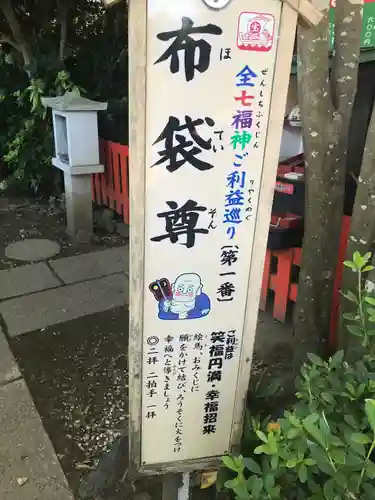 布袋尊
ほてい そん
全七福神ご利益巡り〔第一番〕
ぜんしちふくじん りやくめぐ
ご利益は
笑福円満・幸福招来
絵馬、おみくじに
願をかけて結び、ろうそくに火を
幸福へと導きましょう
◎二拝 二拍手 一拝